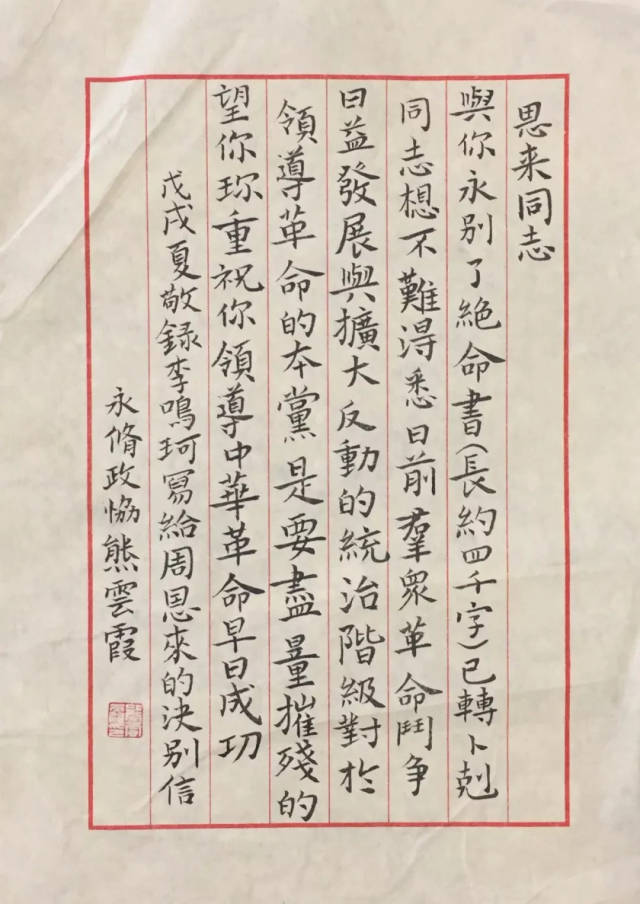 恩来同志
與你永别了絶命書(長約四千字)已轉卜剋
同志想不難得悉日前羣衆革命鬥争
日益發展與擴大反動的統治階級對於
領導革命的本黨是要盡量摧殘的
望你珎重祝你領導中華革命早日成功
戊戌夏敬録李鳴珂寫給周恩來的决别信
永脩政協熊雲霞